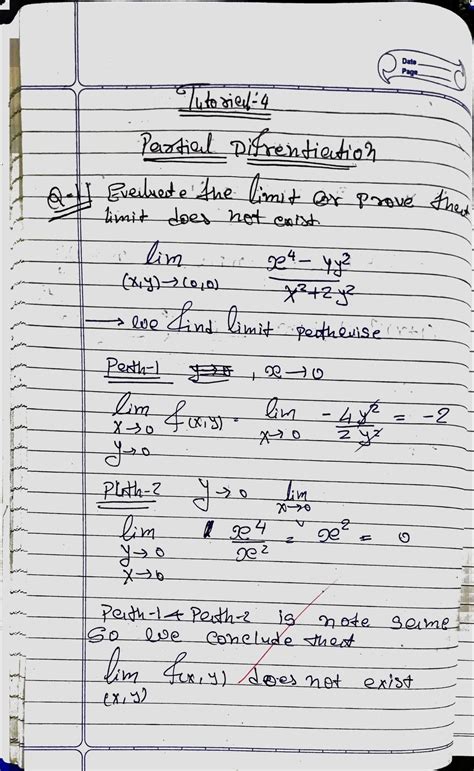 Date
Page
Tutorial-4
Partial Difrentiation
Q-1 Evaluate the limit or prove that
limit does not exist
lim (x,y)→(0,0) x⁴ - 4y² / x²+2y²
→ we find limit pathwise
Path-1 , x→0
lim x→0 y→0 f(x,y) = lim x→0 -4y² / 2y² = -2
Path-2 y→0 lim x→0
lim y→0 x→0 x⁴ / x² = x² = 0
Path-1 & Path-2 is note same
So we conclude that
lim (x,y) f(x,y) does not exist